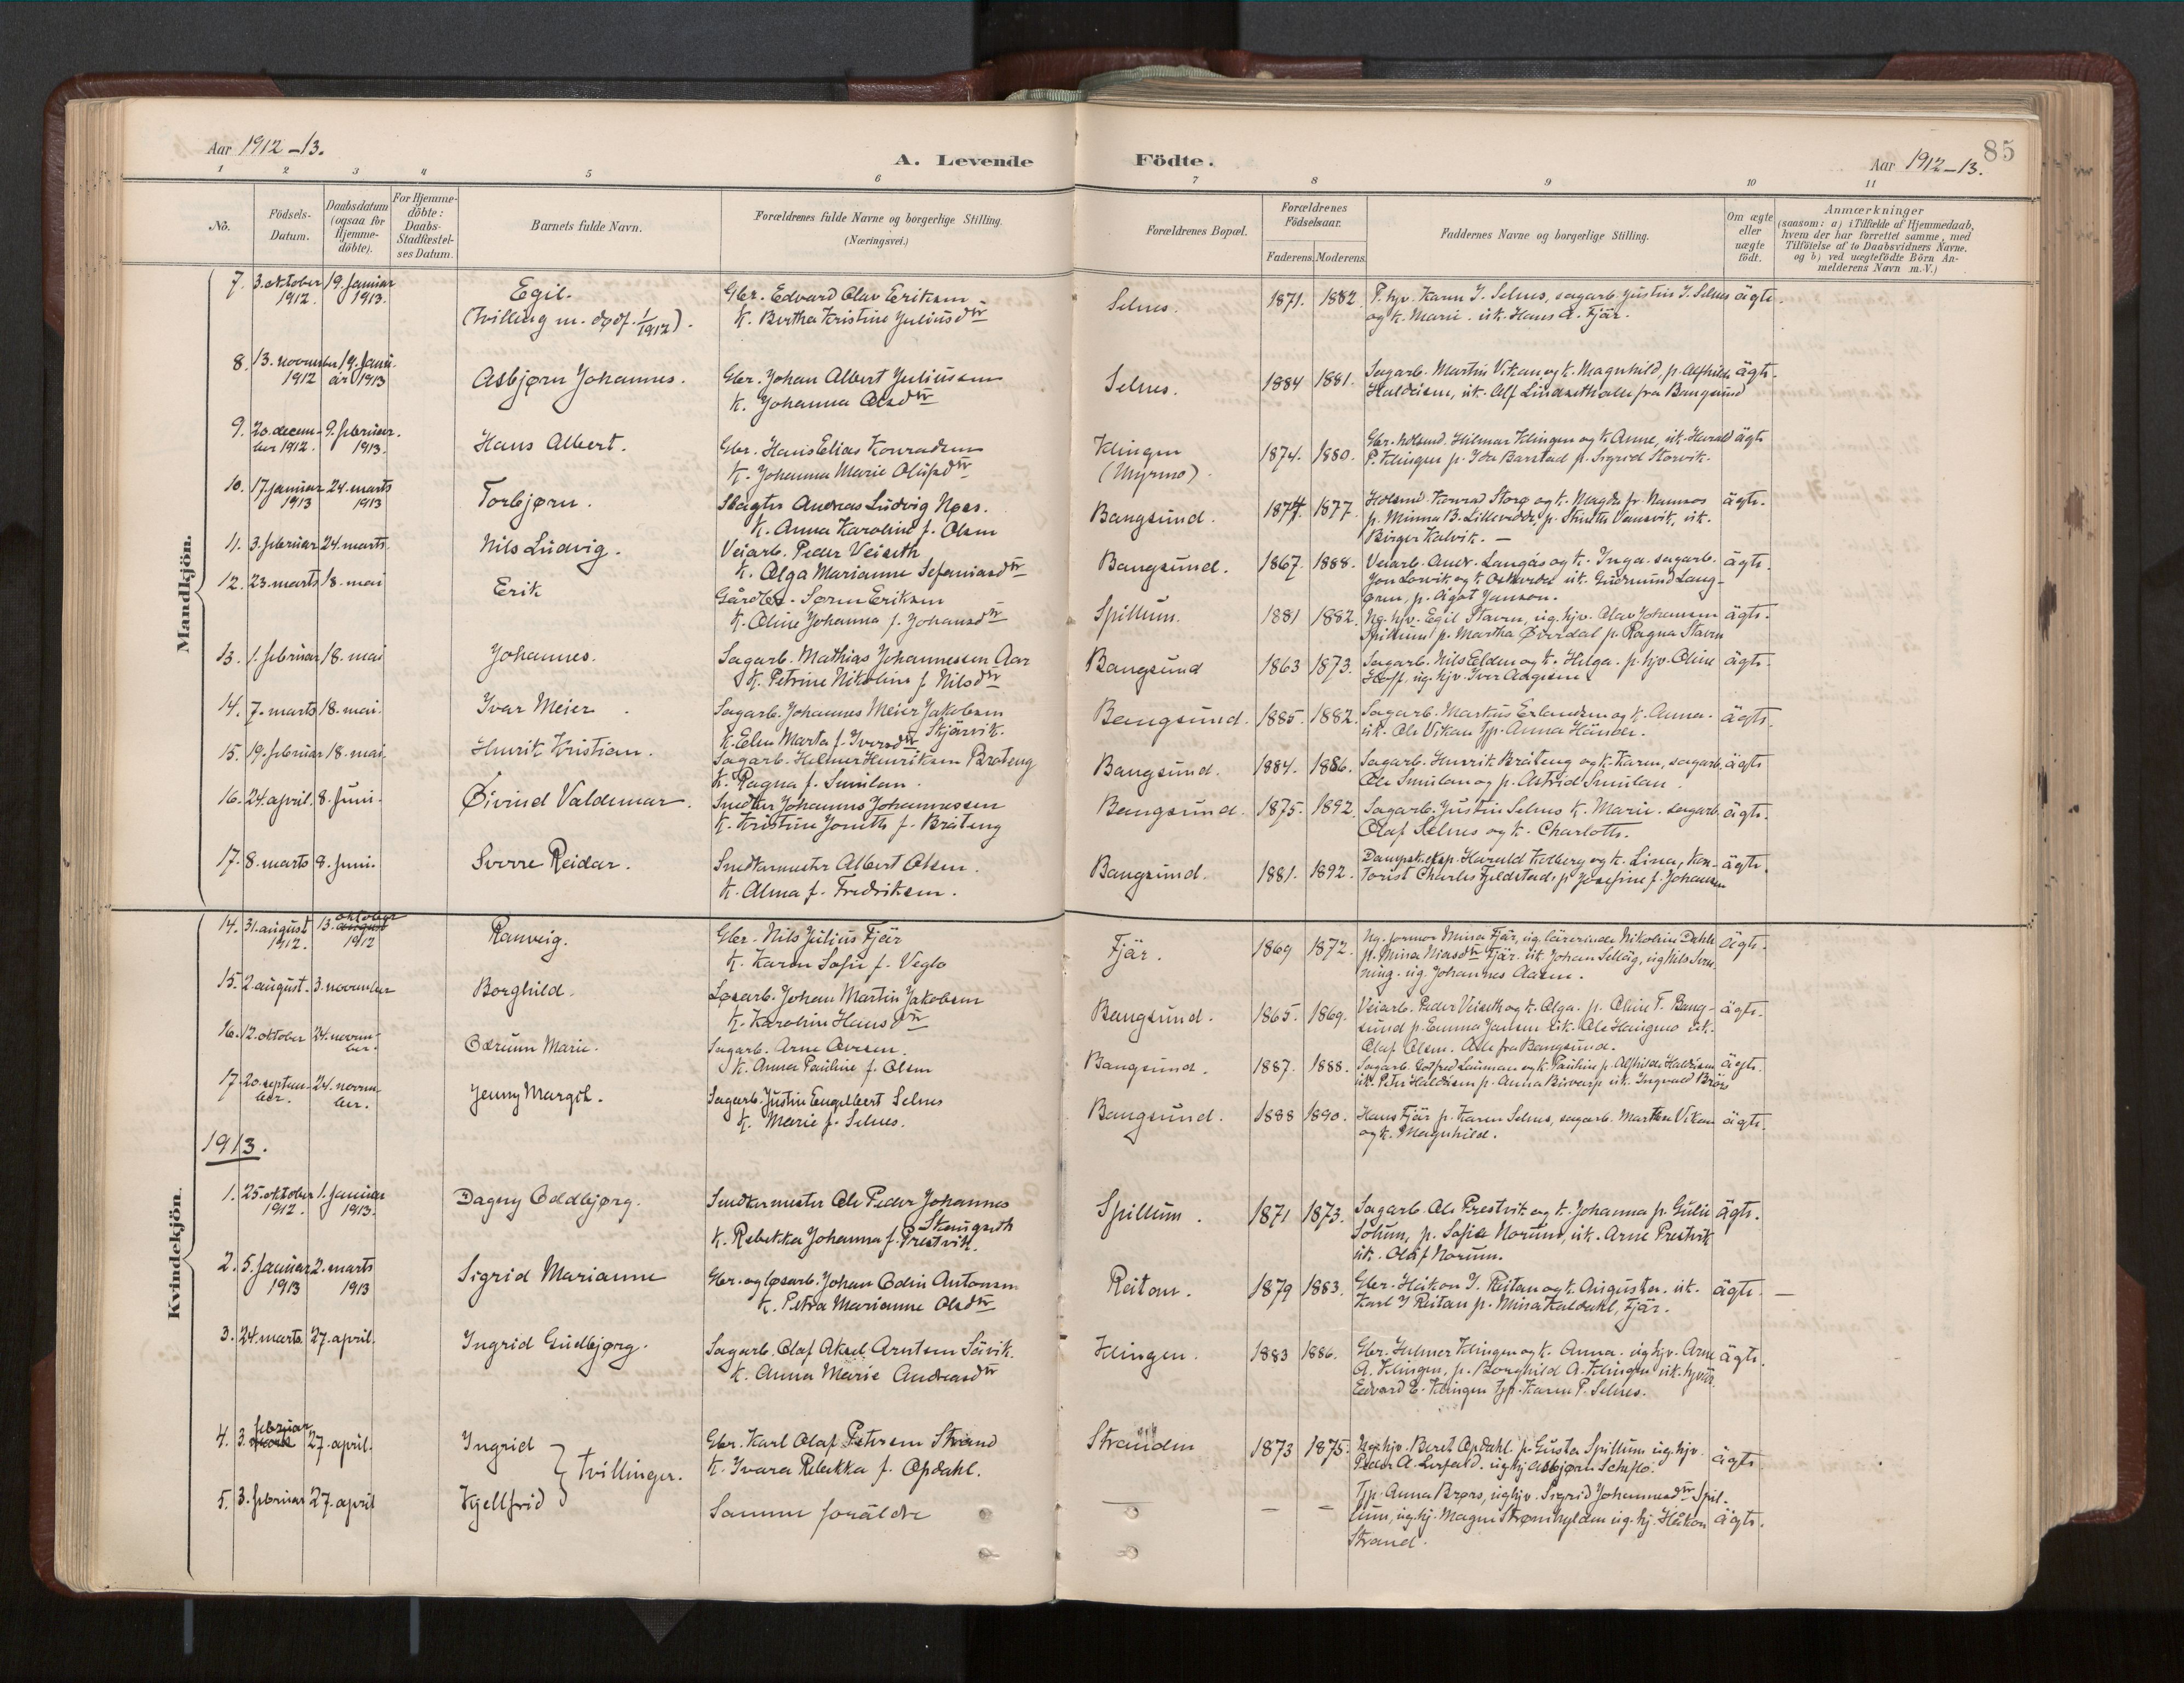 Aar 1912-13.
A. Levende Födte.
85
Aar 1912-13.
1 2 3 4 5 6 7 8 9 10 11
No.
Födsels-
Datum.
Daabsdatum
(ogsaa for
Hjemme-
döbte).
For Hjemme-
döbte:
Daabs-
Stadfæstel-
ses Datum.
Barnets fulde Navn.
Forældrenes fulde Navne og borgerlige Stilling.
(Næringsvei.)
Forældrenes Bopæl.
Forældrenes
Födselsaar.
Faderens. Moderens.
Faddernes Navne og borgerlige Stilling.
Om ægte
eller
uægte
födt.
Anmærkninger
(saasom: a) i Tilfælde af Hjemmedaab,
hvem der har forrettet samme, med
Tilföielse af to Daabsvidners Navne,
og b) ved uægtefödte Börn An-
melderens Navn m.V.)
Mandkjön.
7. 3. oktober 1912. 19. januar 1913.
Egil.
(Tvilling m. dødf. 1/1912).
Gbr. Edvard Olav Eriksen
K. Bertha Kristine Juliusdtr
Selnes. 1871. 1882.
P. hjv. Karen J. Selnes, sagarb. Justin J. Selnes
og k. Marie. uk. Hans A. Fjär.
ägte.
8. 13. november 1912 19. januar 1913
Asbjørn Johannes.
Gbr. Johan Albert Juliussen
K. Johanna Olsdtr
Selnes. 1884 1881.
Sagarb. Martin Vikan og k. Magnhild, p. Alfhilde
Haldisen, uk. Alf Lindseth alle fra Bangsund
ägte.
9. 20. december 1912. 9. februar. 1913.
Hans Albert.
Gbr. Hans Elias Konradsen
K. Johanna Marie Olufsdtr
Klingen
(Myrmo).
1874. 1880.
Hilmar Klingen og k. Anne, uk. Harald
P. Klingen p. Ida Barstad p. Sigrid Storvik.
ägte
10. 17 januar 1913 24. marts 1913
Torbjørn.
Slagter Andreas Ludvig Næss.
K. Anna Karoline f. Olsen
Bangsund. 1877. 1877.
Konrad Storø og k. Magda fr. Namsos
p. Minna B. p. Vansvik, uk.
Birger Kalvik. —
ägte.
11. 3. februar 24. marts.
Nils Ludvig.
Veiarb. Peder Veiseth
K. Olga Marianne Sefaniasdtr
Bangsund. 1867. 1888.
Veiarb. Andr. Langås og k. Inga. sagarb.
Jon Lorvik og k. uk. Gudmund Lang-
ørm, p. Ågot Jansen.
ägte.
12. 23. marts 18. mai
Erik
Gårdbr. Søren Eriksen
K. Oline Johanna f. Johansdtr
Spillum. 1881 1882.
Ug. hjv. Egil Stavrn, ug. hjv. Olav Johansen
Spillum p. Martha Øverdal p. Ragna Stavrn
ägte.
13. 1. februar 18. mai
Johannes.
Sagarb. Mathias Johannessen Aar
K. Petrine Nikoline f. Nilsdtr
Bangsund 1863 1873.
Sagarb. Nils Elden og k. Helga. p. hjv. Oline
Hoff, ug. hjv. Iver Aagesen
ägte.
14. 7. marts 18. mai.
Ivar Meier.
Sagarb. Johannes Meier Jakobsen
Skjärvik.
K. Elen Marta f. Iversdtr
Bangsund. 1885. 1882.
Sagarb. Markus Erlandsen og k. Anna.
uk. Ole Vikan Tjp. Anna Hansen.
ägte.
15. 19. februar 18. mai.
Henrik Kristian.
Sagarb. Helmer Henriksen Bråteng
K. Ragna f. Smulan.
Bangsund. 1884. 1886.
Sagarb. Henrik Bråteng og k. Karen, sagarb.
Ole Smulan og p. Astrid Smulan.
ägte
16. 24. april. 8. juni.
Øivind Valdemar.
Snedker Johannes Johannessen
K. Kristine Jonette f. Bråteng
Bangsund. 1875. 1892.
Sagarb. Justin Selnes k. Marie. sagarb.
Olaf Selnes og k. Charlotte.
ägte.
17. 8. marts 8. juni.
Sverre Reidar.
Snedkermester Albert Olsen.
K. Alma f. Fredriksen.
Bangsund. 1881. 1892.
Dampsk.eksp. Harald Kolberg og k. Lina, Kon-
torist Charles Fjeldstad, p. Josefine f. Johansen
ägte.
Kvindekjön.
14. 31. august 1912. 13. august oktober 1912
Ranveig.
Gbr. Nils Julius Fjär
K. Karen Sofie f. Veglo
Fjär. 1869 1872.
Ug. formor Mina Fjär, ug. lärerinde Nikoline Dahle
p. Mina Niasdtr Fjär. uk. Johan Selläg, ug Nils
ug. Johannes Aasen.
ägte.
15. 2. august. 3. november
Borghild.
Løsarb. Johan Martin Jakobsen
K. Karoline Hansdtr
Bangsund. 1865. 1869.
Veiarb. Peder Veiseth og k. Olga. p. Oline T. Bang-
sund p. Emma Jansen uk. Ole Haugmo uk.
Olaf Olsen. Alle fra Bangsund.
ägte.
16. 12. oktober 24. november.
Odrunn Marie.
Sagarb. Arne Aresen.
K. Anna Pauline f. Olsen
Bangsund. 1887. 1888.
Sagarb. Gotfred Lauman og k. Pauline p. Alfhilde Haldisen
uk. Peter Haldisen p. Anna uk. Ingvald Brörs
ägte.
17. 20. september. 24. november.
Jenny Margit.
Sagarb. Justin Engelbert Selnes
K. Marie f. Selnes.
Bangsund. 1888 1890.
Hans Fjär p. Karen Selnes, sagarb. Marthin Vikan
og k. Magnhild.
ägte.
1913.
1. 25. oktober 1912. 1. januar 1913.
Dagny Oddbjørg.
Snedkermester Ole Peder Johannes
Skaugseth
K. Rebekka Johanna f. Prestvik.
Spillum. 1871 1873.
Sagarb. Ole Prestvik og k. Johanna p. Gulie
Solum, p. Sofie Norum, uk. Arne Prestvik
uk. Olaf Norum.
ägte.
2. 5. januar 1913 2. marts 1913
Sigrid Marianne
Gbr. og løsarb. Johan Odin Antonsen
K. Petra Marianne Olsdtr
Reitan. 1879 1883.
Gbr. Håkon J. Reitan og k. Augusta. uk.
Karl J Reitan p. Mina Kaldahl, Fjär.
ägte. —
3. 24. marts. 27. april.
Ingrid Gudbjørg.
Sagarb. Olaf Aksel Arntsen Sävik.
K. Anna Marie Andreasdtr
Klingen. 1883 1886.
Gbr. Hilmer Klingen og k. Anna. ug hjv. Arne
A. Klingen, p. Borghild A. Klingen uk.
Edvard E. Klingen Tjp. Karen P. Selnes.
ägte.
4. 3. marts februar 27. april.
Ingrid
Gbr. Karl Olaf Petersen Strand
K. Ivara Rebekka f. Opdahl.
Tvillinger.
Stranden 1873 1875.
Beret Opdahl. p. Gusta Spillum ug. hjv.
Peder A. Lerfald. ug hj Asbjørn Scheflo.
ägte
5. 3. februar 27. april
Kjellfrid
Samme foräldre
— — —
Tjp. Anna Brørs, ug hjv. Sigrid Johannesdtr Spil-
lum, ug. hj. Magne Strømhylden ug. hj. Håkon
Strand.
ägte.